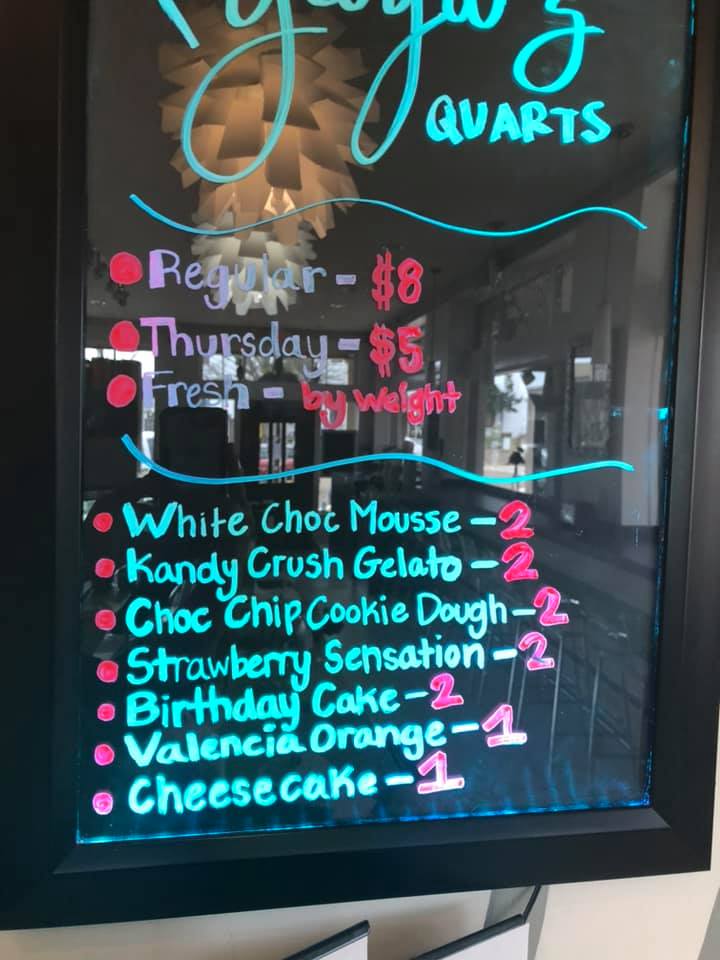 QUARTS
Regular - $8
Thursday - $5
Fresh - by weight
White Choc Mousse - 2
Kandy Crush Gelato - 2
Choc Chip Cookie Dough - 2
Strawberry Sensation - 2
Birthday Cake - 2
Valencia Orange - 1
Cheesecake - 1